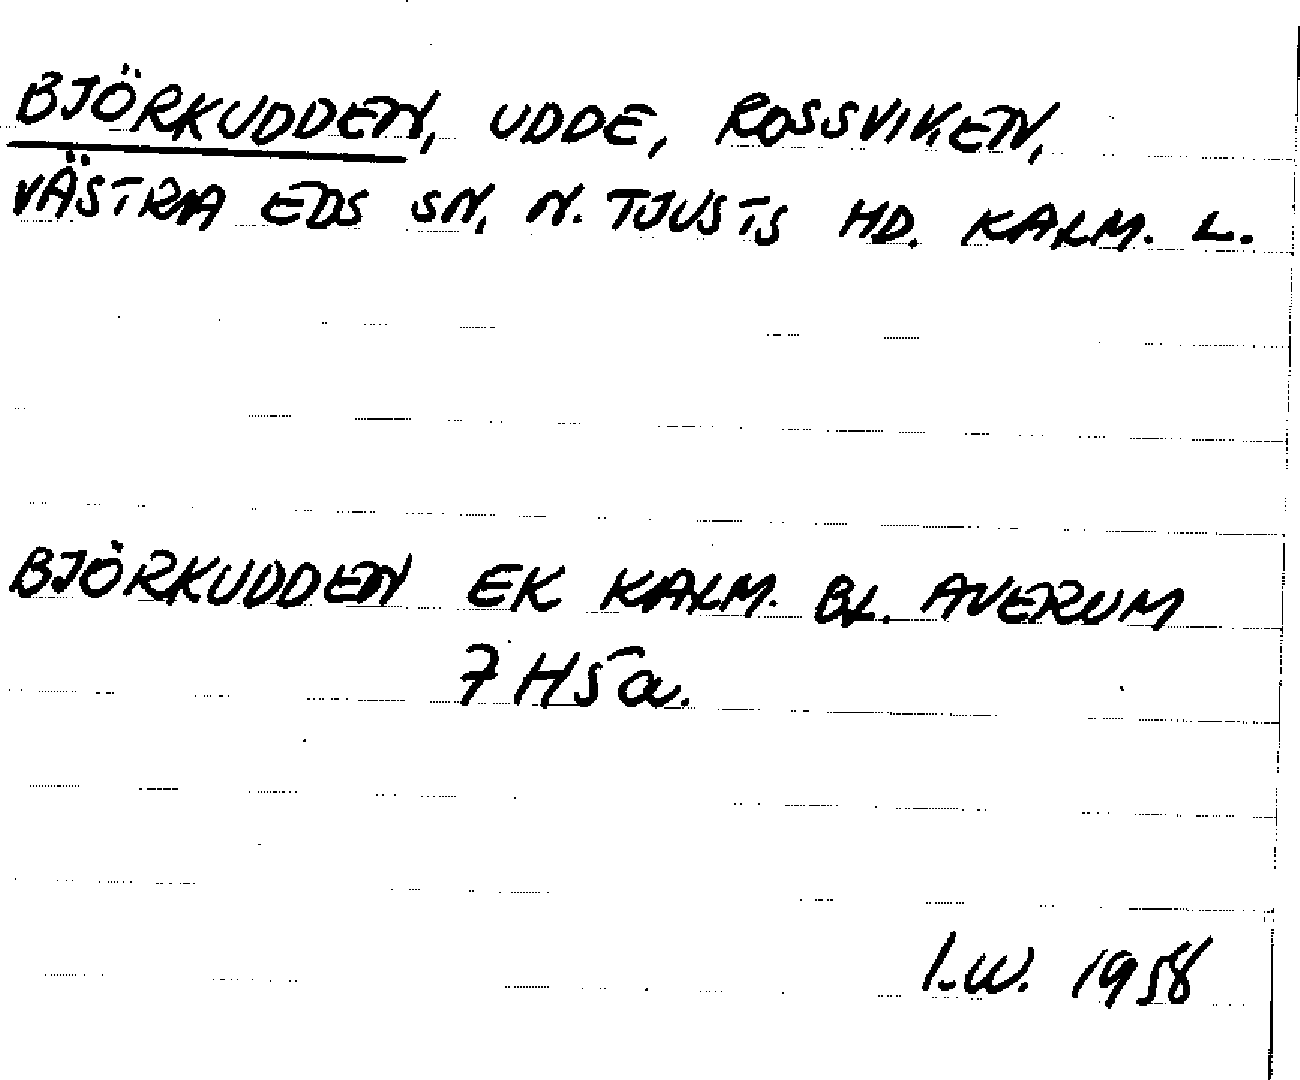 BJÖRKUDDEN, UDDE, ROSSVIKEN,
VÄSTRA EDS SN, N. TJUSTS HD. KALM. L.
BJÖRKUDDEN EK KALM. BL. AVERUM
7 H5a.
I.W. 1958